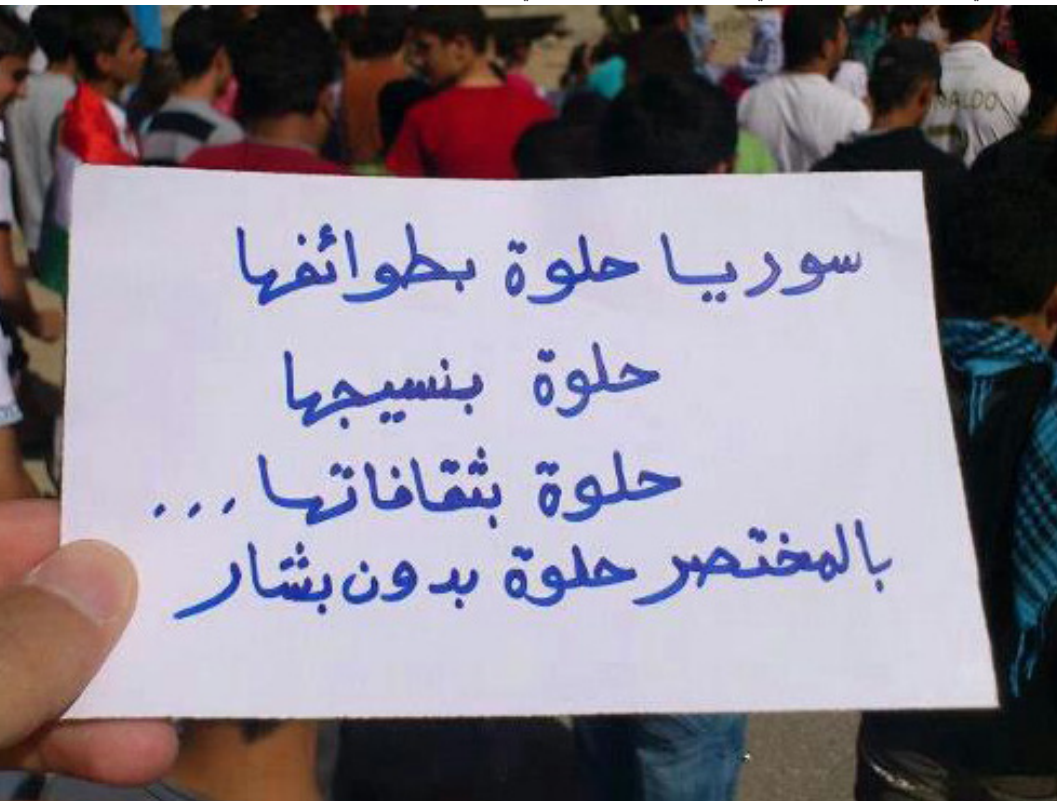 سوريا حلوة بطوائفها
حلوة بنسيجها
حلوة بثقافاتها...
بالمختصر حلوة بدون بشار